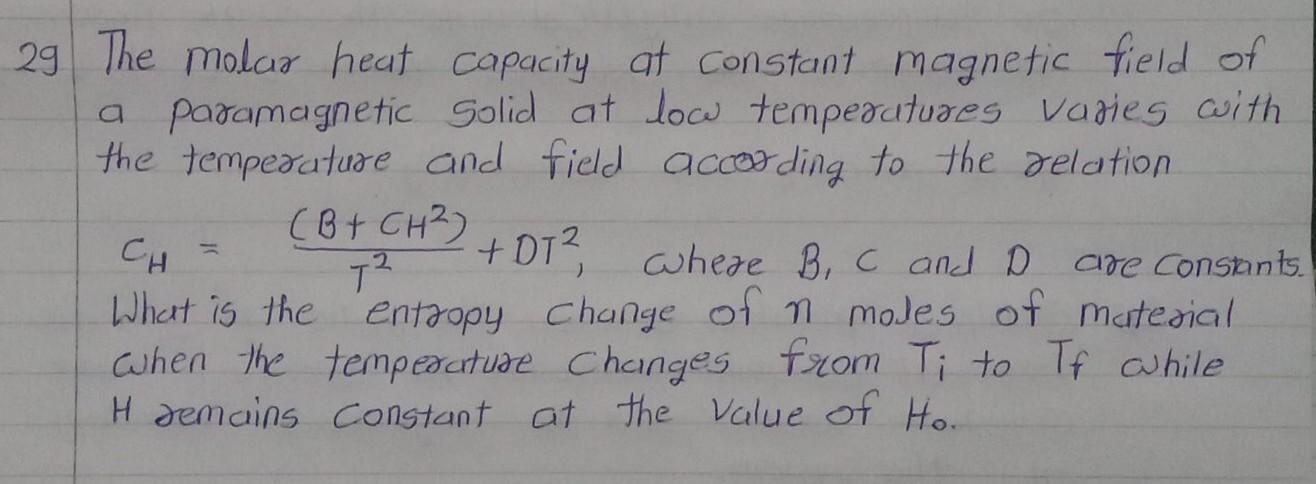 29 The molar heat capacity at constant magnetic field of
a paramagnetic solid at low temperatures varies with
the temperature and field according to the relation
CH = (B + CH²)/T² + DT², where B, C and D are constants.
What is the entropy change of n moles of material
when the temperature changes from Ti to Tf while
H remains constant at the value of H₀.